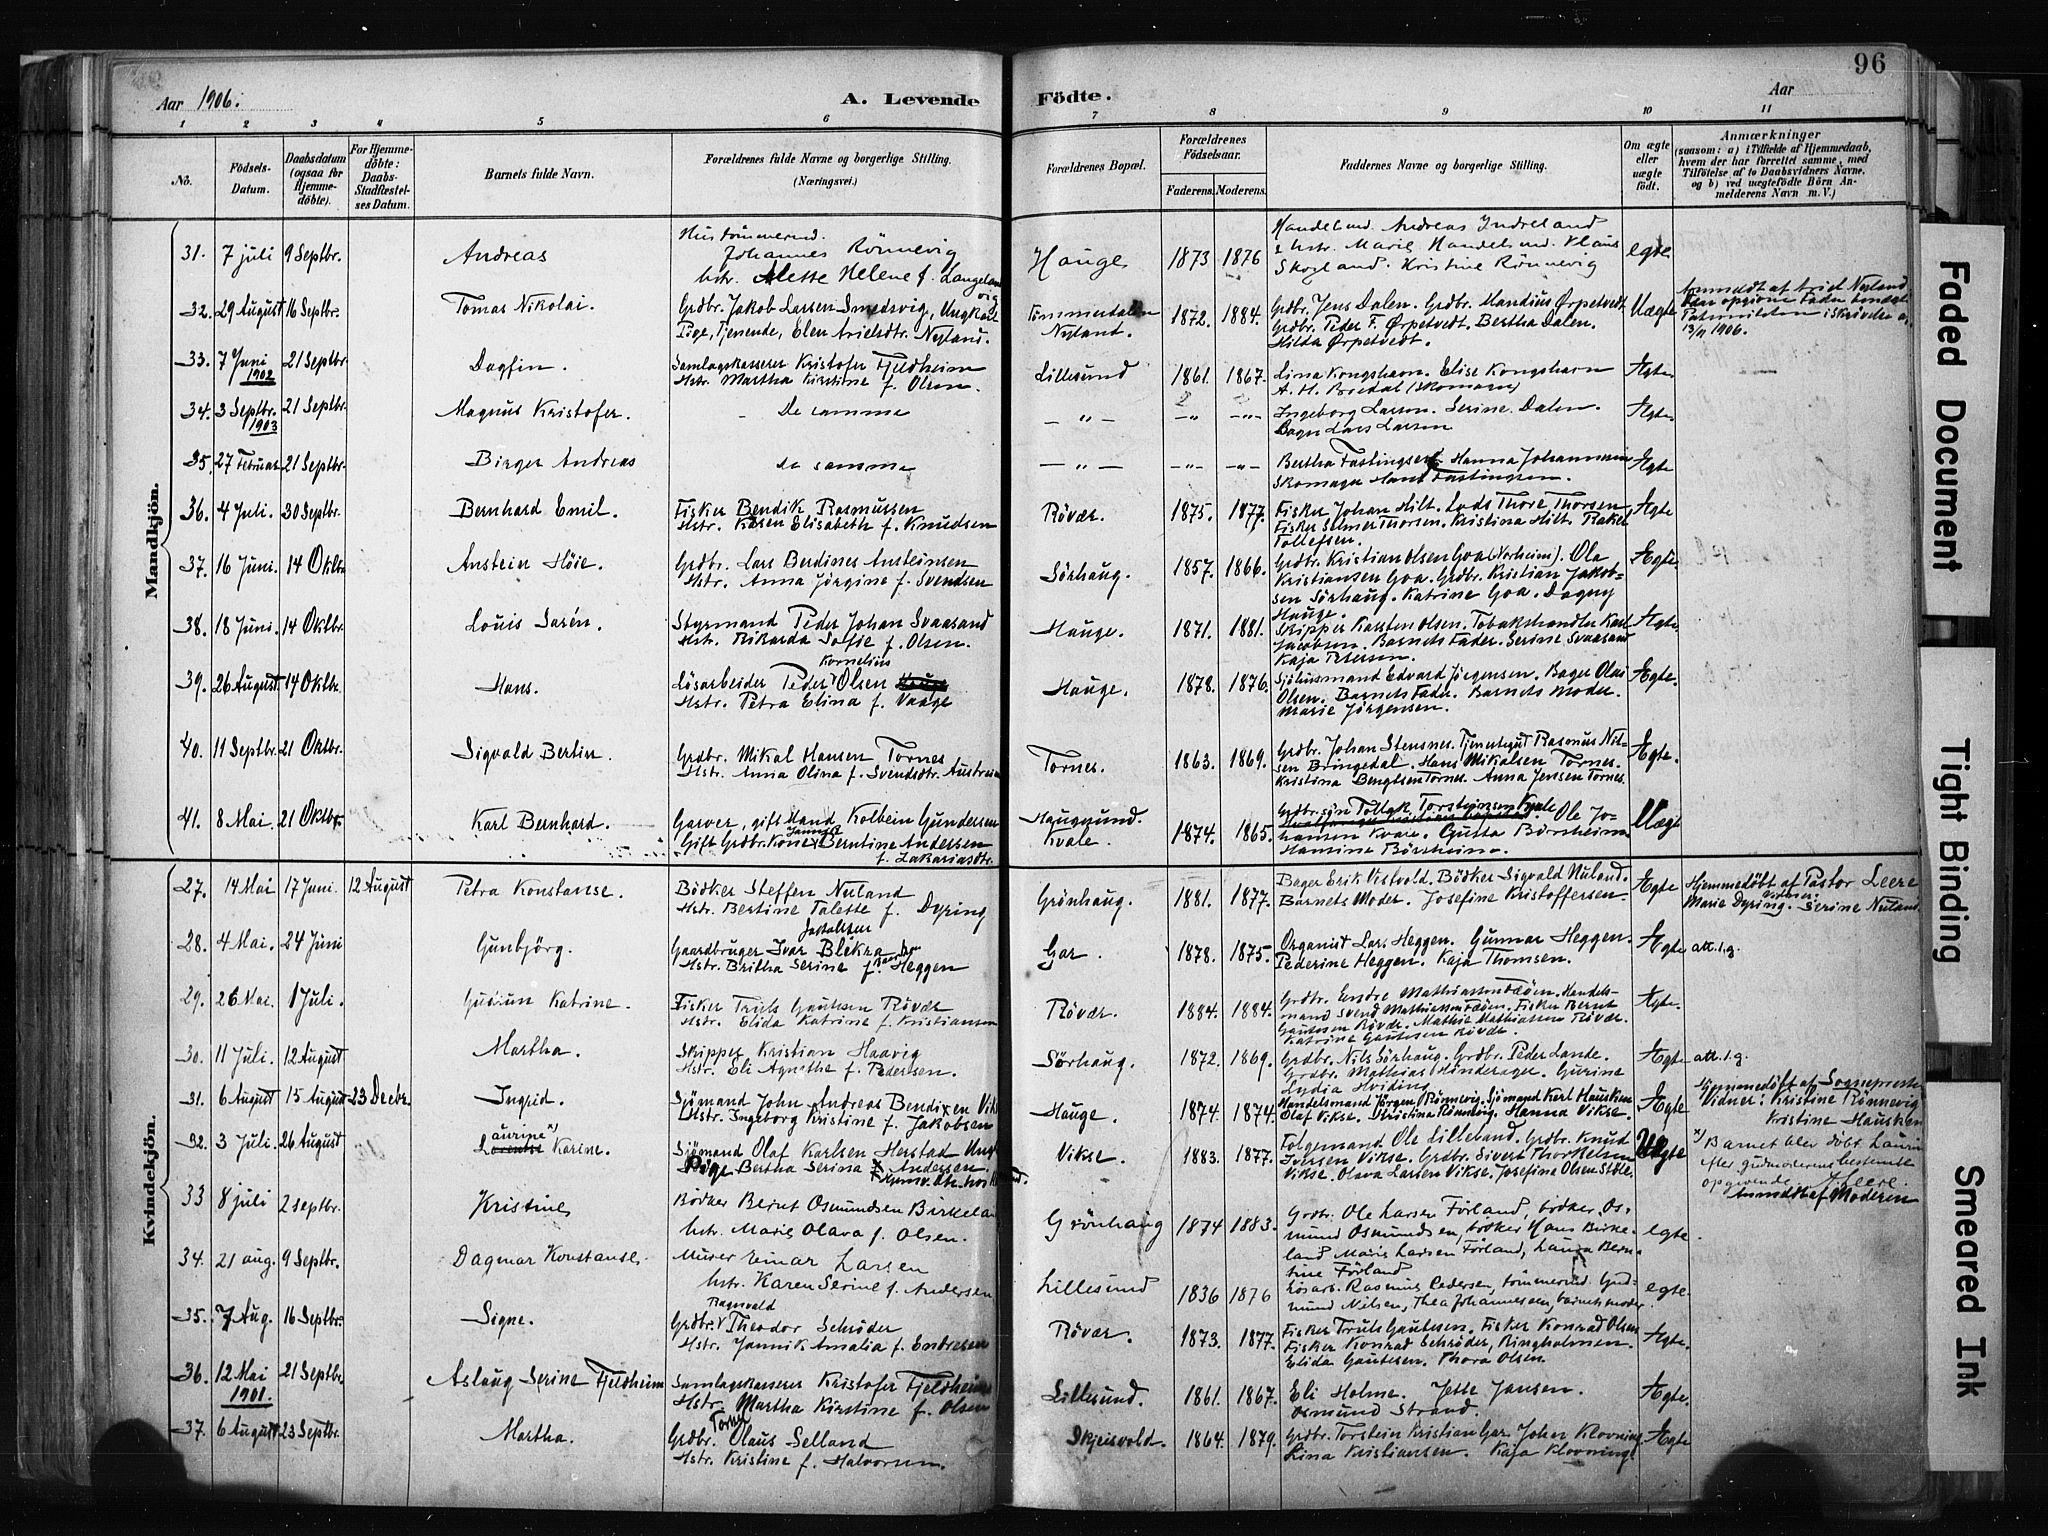 96
Aar 1906.
A. Levende Födte.
Aar
1 2 3 4 5 6 7 8 9 10 11
No.
Födsels-Datum.
Daabsdatum (ogsaa for Hjemme-döbte).
For Hjemme-döbte: Daabs-Stadfæstel-ses Datum.
Barnets fulde Navn.
Forældrenes fulde Navne og borgerlige Stilling.
(Næringsvei.)
Forældrenes Bopæl.
Forældrenes Födselsaar.
Faderens. Moderens.
Faddernes Navne og borgerlige Stilling.
Om ægte eller uægte födt.
Anmærkninger
(saasom: a) i Tilfælde af Hjemmedaab, hvem der har forrettet samme, med Tilföielse af to Daabsvidners Navne, og b) ved uægtefödte Börn An-melderens Navn m. V.)
Mandkjön.
31. 7 juli 9 Septbr. Andreas
Johannes Rönnevig
Hauge 1873 1876
Handelsmd. Andreas Indreland
Skogland. Kristine Rönnevig
egte
32. 29 August 16 Septbr. Tomas Nikolai.
Grdbr. Jakob Larsen Smedsvig, Ungkarl
Pige, Tjenende, Elen Arieldtr. Nyland.
Tömmerdalen
Nyland.
1872. 1884.
Grdbr. Jens Dalen. Grdbr. Mandius Ørpetvedt.
Grdbr. Peder F. Ørpetvedt. Bertha Dalen.
Hilda Ørpetvedt.
Uægte
13/11 1906.
33. 7 Juni 1902 21 Septbr Dagfin.
Samlagskasserer Kristofer Fjeldheim
Hstr. Martha Kirstine f. Olsen.
Lillesund 1861. 1867.
Lina Kongshavn. Elise Kongshavn
A. H. Bredal (Skomager)
Ægte
34. 3 Septbr. 1903 21 Septbr Magnus Kristofer.
De samme
— " — —"— —"—
Ingeborg Larsen. Serine Dalen.
Bager Lars Larsen
Ægte
35. 27 Februar 21 Septbr. Birger Andreas
De samme
— " — —"— —"—
Bertha Fastingsen. Hanna Johannesen
Skomager Hans Fastingsen.
Ægte
36. 4 Juli. 30 Septbr. Bernhard Emil.
Fisker Bendik Rasmussen
Hstr. Karen Elisabeth f. Knudsen
Rövær. 1875. 1877.
Fisker Johan Hilt. Lods Thore Thorsen,
Fisker Selmer Thorsen. Kristina Hilt. Rakel
Tollefsen.
Ægte
37. 16 Juni. 14 Oktbr Anstein Höie.
Grdbr. Lars Berdines Ansteinsen
Hstr. Anna Jörgine f. Svendsen
Sörhaug. 1857. 1866.
Grdbr. Kristian Olsen Goa (Norheim). Ole
Kristiansen Goa. Grdbr. Kristian Jakob-
sen Sörhaug. Katrine Goa. Dagny
Hauge.
Ægte.
38. 18 Juni. 14 Oktbr. Louis Sarén.
Styrmand Peder Johan Svaasand
Hstr. Rikarda Sofie f. Olsen.
Hauge. 1871. 1881.
Skipper Karsten Olsen. Tobakshandler Karl
Jacobsen. Barnets Fader. Serine Svaasand
Kaja Petersen.
Ægte.
39. 26 August 14 Oktbr. Hans.
Kornelius
Lösarbeider Peder Olsen
Hstr. Petra Elina f. Vaage
Hauge. 1878. 1876.
Sjöhusmand Edvard Jörgensen. Bager Olai
Olsen. Barnets Fader. Barnets Moder.
Marie Jörgensen.
Ægte.
40. 11 Septbr. 21 Oktbr. Sigvald Bertin.
Grdbr. Mikal Hansen Tornes
Hstr. Anna Olina f. Svendsdtr.
Tornes. 1863. 1869.
Grdbr. Johan Stensnes. Tjenestegut Rasmus Nil-
sen Bringedal. Hans Mikalsen Tornes.
Kristina Bengtsen Tornes. Anna Jensen Tornes.
Ægte.
41. 8 Mai. 21 Oktbr. Karl Bernhard.
Garver, gift Mand Kolbein Gundersen
Gift Grdbr. Kone Berntine Andersen
f. Zakariasdtr.
Haugesund.
Kvale. 1874. 1865.
Grdbr. sön Tollak Torsteinsen Kvale
Ole Jo-
hansen Kvale. Gutta Börsheim
Hansine Börsheim.
Uægte
Kvindekjön.
27. 14 Mai 17 Juni. 12 August Petra Konstanse.
Bödker Steffen Nuland
Hstr. Bertine Talette f. Dyring
Grönhaug. 1881. 1877.
Bager Erik Vistvold. Bödker Sigvald Nuland.
Barnets Moder. Josefine Kristoffersen.
Ægte
Hjemmedöbt af Pastor Leere
Marie Dyring. Serine Nuland.
28. 4 Mai. 24 Juni Gunbjörg.
Gaardbruger Ivar Blekra
Hstr. Britha Serine f. Heggen
Gar. 1878. 1875.
Organist Lars Heggen. Gunnar Heggen.
Pederine Heggen. Kaja Thomsen.
Ægte att. l. g.
29. 26 Mai. 1 Juli. Gudrun Katrine.
Fisker Truls Gautesen Rövær
Hstr. Elida Katrine f. Kristiansen
Rövær. 1884. 1884.
Grdbr. Endre Mathiassen Fæöen. Handels-
mand Svend Mathiassen Fæöen. Fisker Bernt
Gautesen Rövær. Mathie Mathiassen Rövær.
Katrine Gautesen Rövær.
Ægte.
30. 11 Juli. 12 August Martha.
Skipper Kristian Haavig
Hstr. Eli Agnethe f. Pedersen.
Sörhaug. 1872. 1869.
Grdbr. Nils Sörhaug. Grdbr. Peder Lande.
Grdbr. Mathias Hinderager. Gurine
Lydia Hviding
Ægte att. l. g.
31. 6 August 15 August 23 Decbr. Ingrid.
Sjömand John Andreas Bendixen
Hstr. Ingeborg Kristine f. Jakobsen
Hauge. 1874. 1874.
Handelsmand Jörgen Rönnevig. Sjömand Karl Hausken
Olaf Vikse. Christina Rönnevig. Hanna Vikse.
Ægte
Hjemmedöbt af Sognepresten
Vidner: Kristine Rönnevig
Kristine Hausken
32. 3 Juli. 26 August Laurine Karine.
Sjömand Olaf Karlsen Herstad
Pige Bertha Serina Andersen.
Vikse. 1883. 1877.
Folgemand Ole Lilleland. Grdbr. Knud
Iversen Vikse. Grdbr. Sivert Thorkelsen
Vikse. Olava Larsen Vikse. Josefine Olsen Stöle.
Uægte
x) Barnet blev döbt Laurine
efter gudmoderens bestemte
opgivende. Leere.
Anmeldt af Moderen
33 8 juli 2 septbr. Kristine
Bödker Bernt Osmundsen Birkeland
hstr. Marie Olava f. Olsen.
Grönhaug 1874 1883.
Grdbr. Ole Larsen Förland, bödker Os-
mund Osmundsen, bödker Hans Birke-
land Marie Larsen Förland, Laura Bern-
tine Förland
egte.
34. 21 aug. 9 Septbr. Dagmar Konstanse.
Murer Einar Larsen
hstr. Karen Serine f. Andersen
Lillesund 1836 1876
Lösarb. Rasmus Pedersen, tömmermd. Gud-
mund Nilsen, Thea Johannesen, barnets moder.
egte.
35. 7 Aug. 16 Septbr. Signe.
Ragnvald
Grdbr. Theodor Schröder
Hstr. Jannik Amalia f. Endresen
Rövær. 1873. 1877.
Fisker Truls Gautesen. Fisker Konrad Olsen
Fisker Konrad Schröder, Ringholmen.
Elida Gautesen. Thora Olsen.
Ægte.
36. 12 Mai 1901. 21 Septbr. Aslaug Serine Fjeldheim
Samlagskasserer Kristofer Fjeldheim
Hstr. Martha Kirstine f. Olsen
Lillesund. 1861. 1867.
Eli Holme. Jette Jansen.
Osmund Strand.
Ægte.
37. 6 August 23 Septbr. Martha.
Tornes
Grdbr. Olaus Selland
Hstr. Kristine f. Halvorsen.
Skjeisvold. 1864. 1879.
Grdbr. Torstein Kristian Gar. John Klovning
Lina Kristiansen. Kaja Klovning.
Ægte
Faded Document
Tight Binding
Smeared Ink